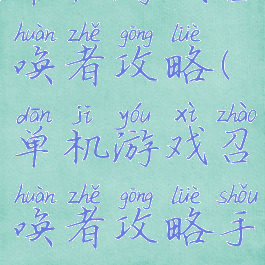 huàn zhě gōng lüè
唤者攻略(
dān jī yóu xì zhào
单机游戏召
huàn zhě gōng lüè shǒu
唤者攻略手